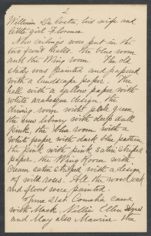 2
William De Costa, his wife and
little girl Florence
The ceilings were put in the
two front halls, the blue room
and the Wing room. The old
study was painted and papered
with a landscape paper. The
hall with a yellow paper with
white arabesque design. The
dining room with pale green
the Sun library with dull
pink, the blue room with a
white paper with dark blue pattern
the pink with pink satin striped
paper, the Wing Room with
cream satin striped with a design
of wild roses. All the wood work
and floors were painted.
Upon
came
with Mark, Nellie, Ellen
and May also Maurice the